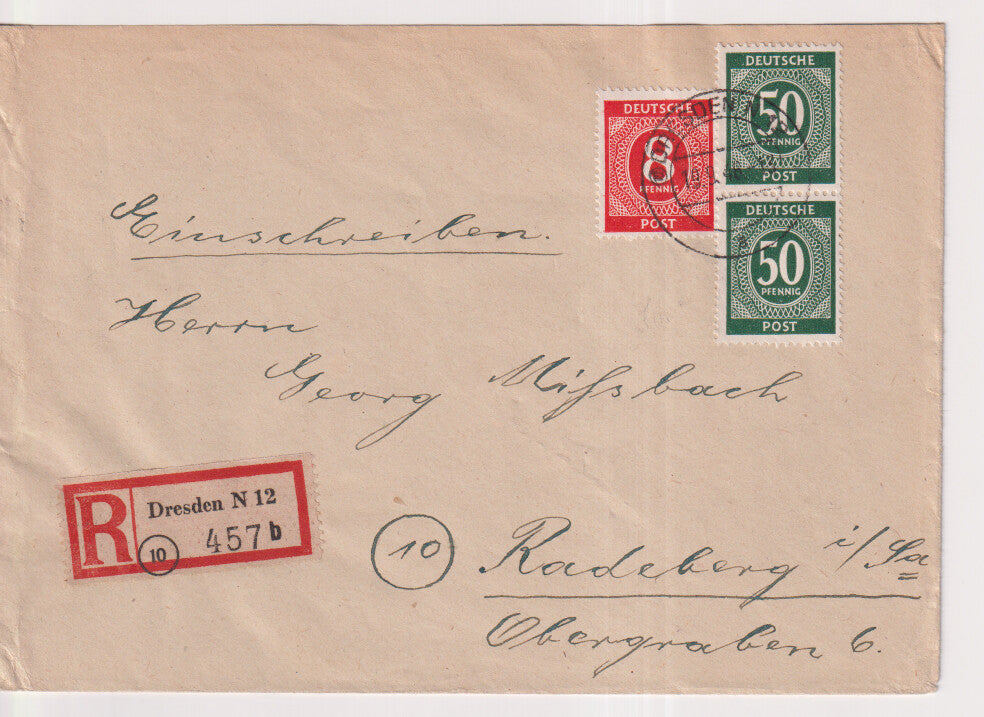 DEUTSCHE
8
PFENNIG
POST
DEUTSCHE
50
PFENNIG
POST
DEUTSCHE
50
PFENNIG
POST
Einschreiben.
Herrn
Georg Mißbach
R
Dresden N 12
10
457 b
10
Radeberg i/Sa
Obergraben 6.